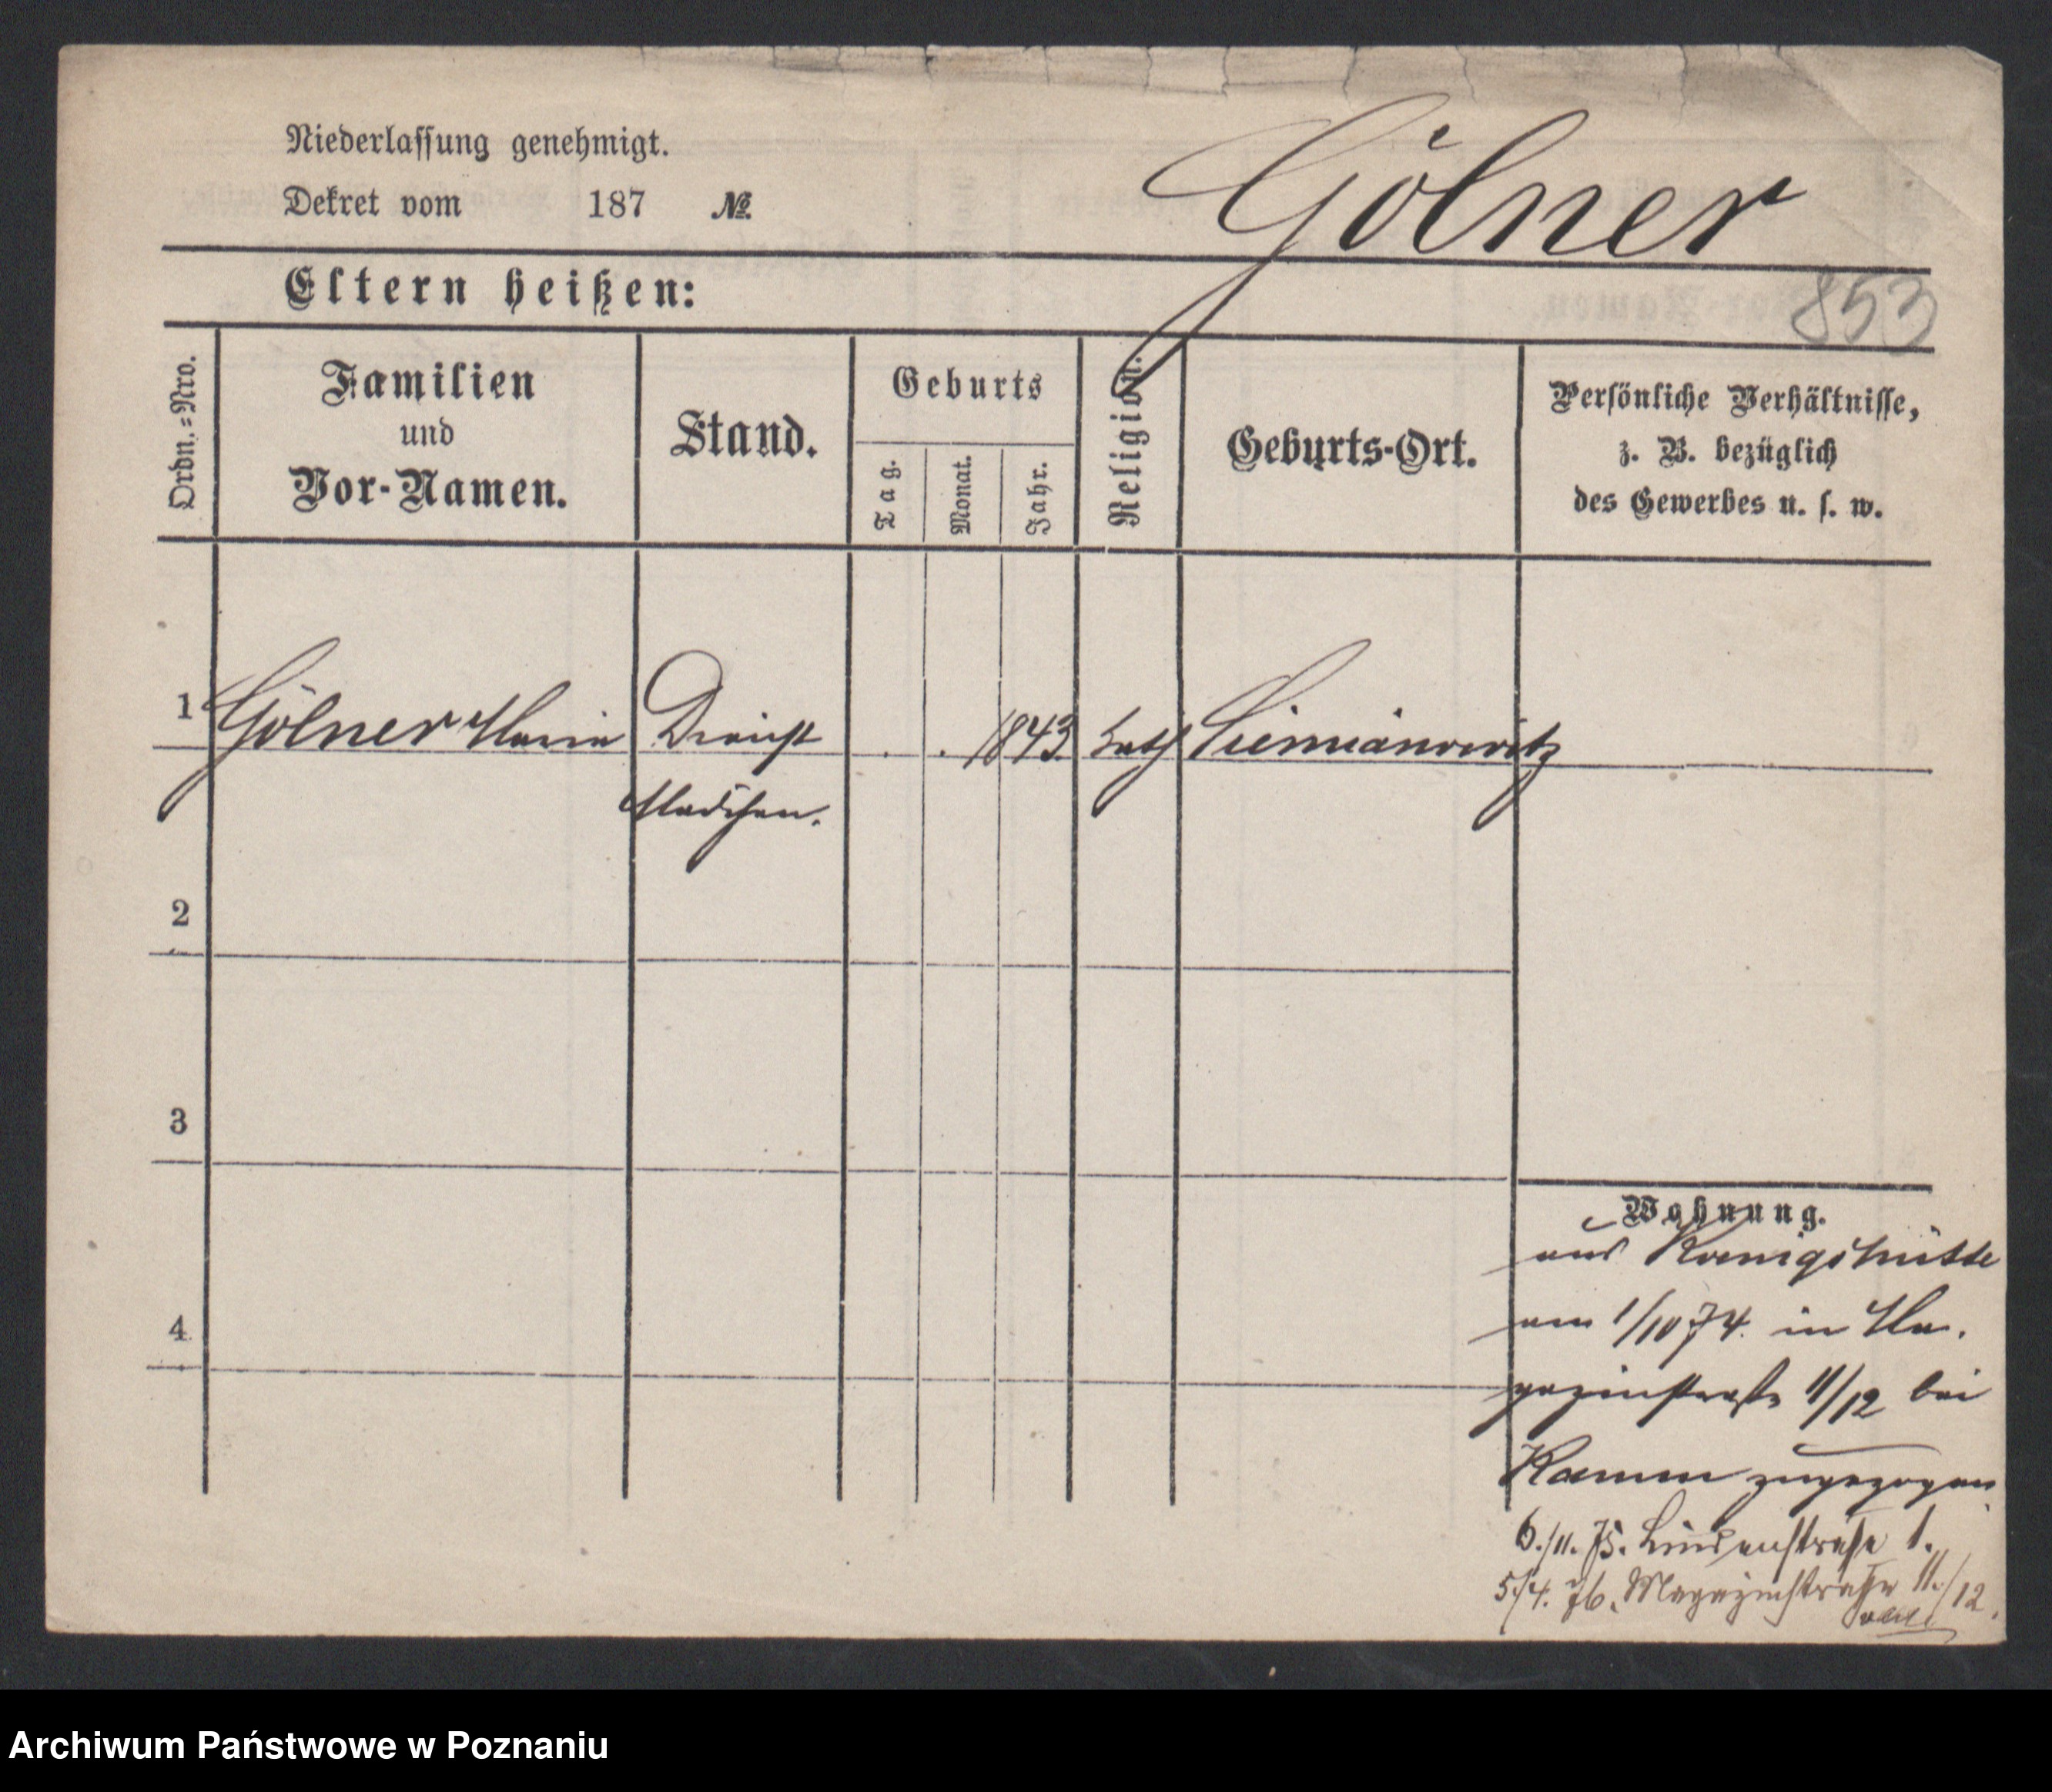 Niederlassung genehmigt.
Dekret vom 187 №
Gölner
Eltern heißen:
853
Ordn.=Nro.
Familien
und
Vor-Namen.
Stand.
Geburts
Tag.
Monat.
Jahr.
Religion.
Geburts-Ort.
Persönliche Verhältnisse,
z. B. bezüglich
des Gewerbes u. s. w.
1 Gölner Maria Dienst . . 1843 kath Siemianowitz
Mädchen.
2
3
4
Wohnung.
aus Koenigshütte
am 1/10 74. in Ma-
gazinstraße 11/12 bei
Kamm zugezogen
6./11. 75. Lindenstraße 1.
5/4. 76. Magazinstraße 11./12.
Archiwum Państwowe w Poznaniu